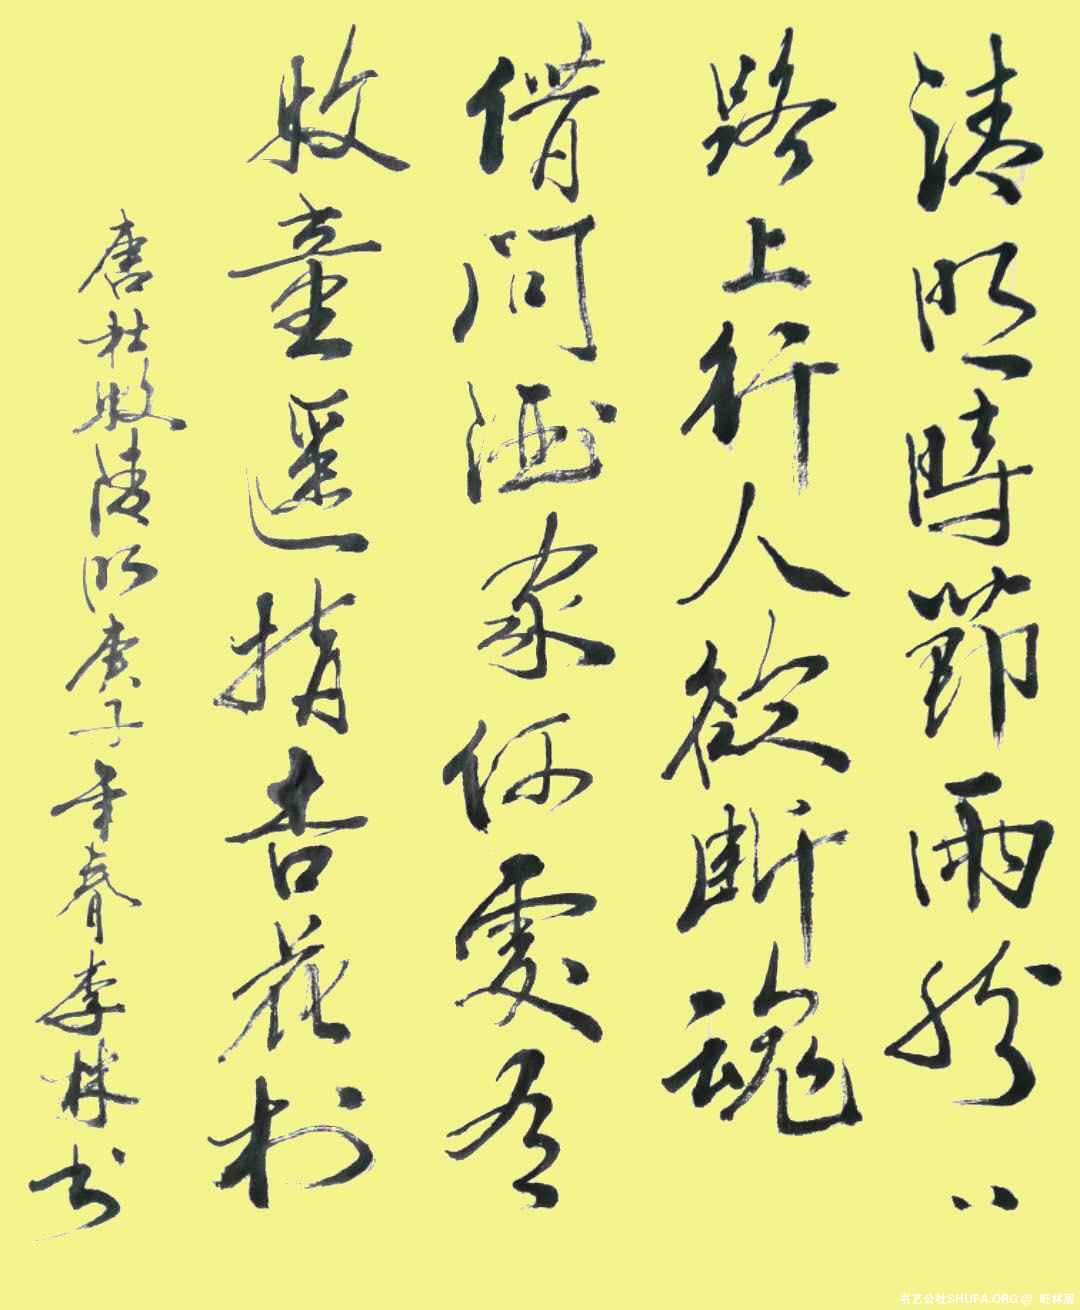 清明時節雨紛〻
路上行人欲断魂
借问酒家何處有
牧童遥指杏花村
唐杜牧清明庚子年春李林书
书艺公社SHUFA.ORG @ 旺林居